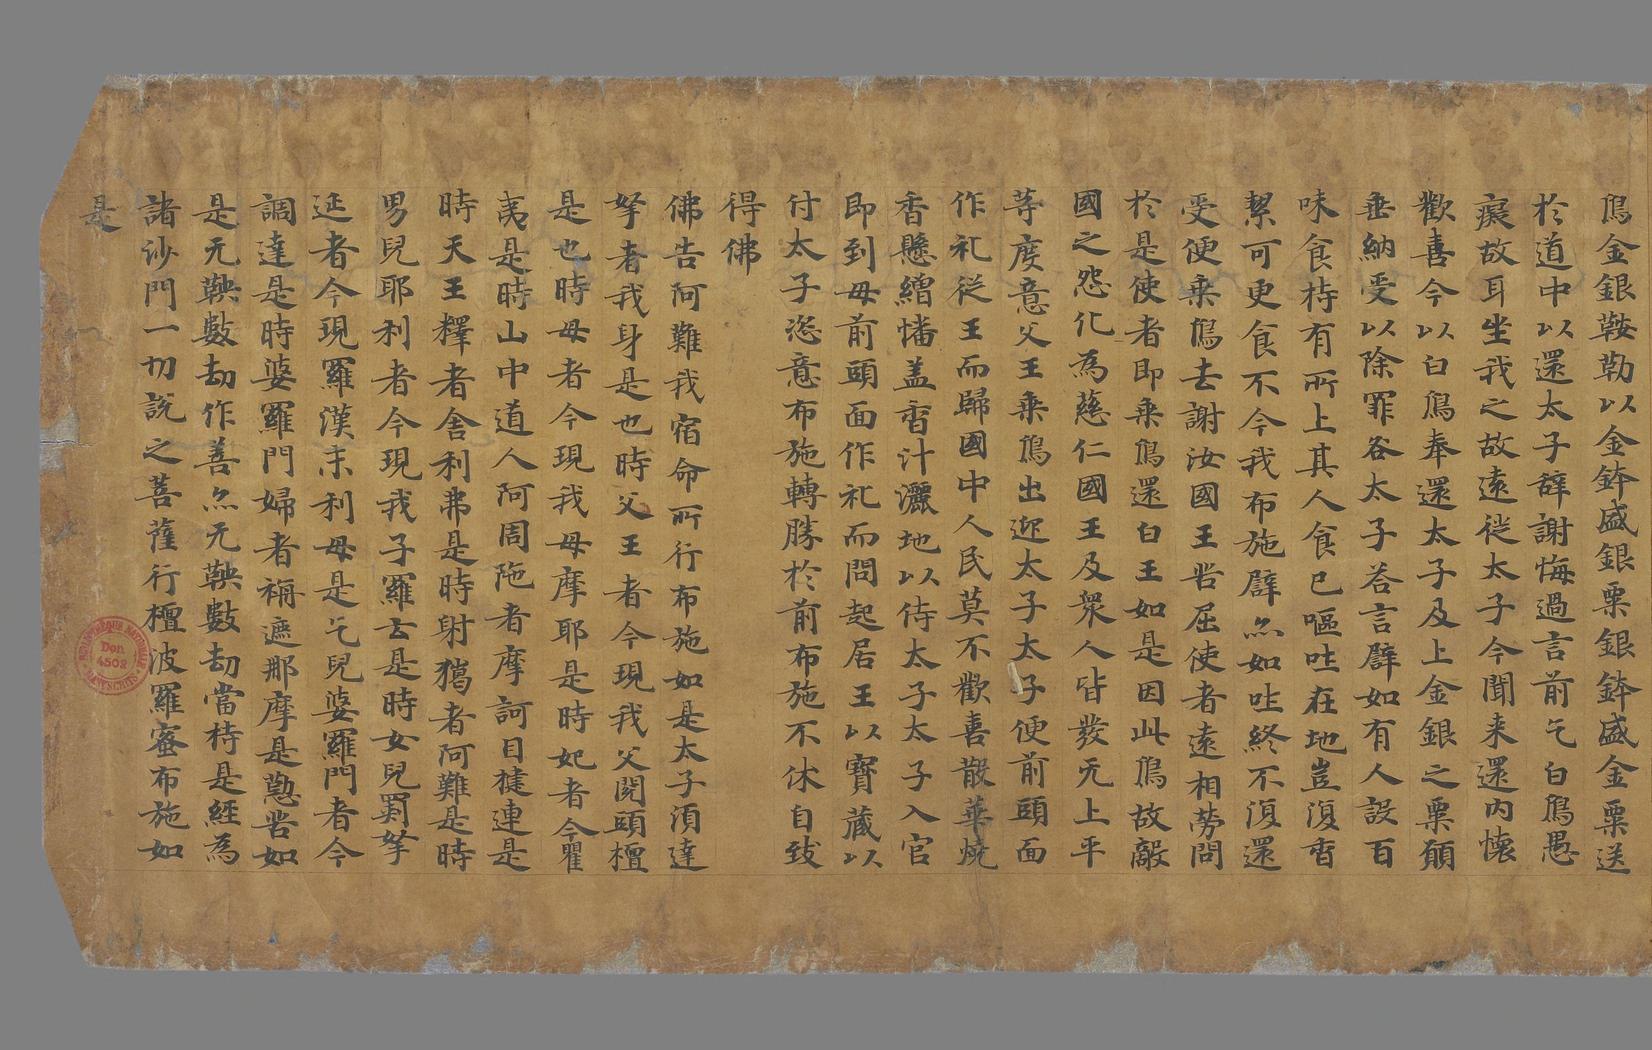 鴈金銀鞍勒以金鉢盛銀粟銀鉢盛金粟送
於道中以還太子辤謝悔過言前乞白鴈愚
癡故耳坐我之故遠從太子今聞来還内懷
歡喜今以白鴈奉還太子及上金銀之粟願
垂納受以除罪咎太子荅言譬如有人設百
味食持有所上其人食已嘔吐在地豈復香
潔可更食不今我布施譬亦如吐終不復還
受便乗鴈去謝汝國王苦屈使者遠相勞問
於是使者即乗鴈還白王如是因此鴈故敵
國之怨化為慈仁國王及衆人皆發无上平
等度意父王乗鴈出迎太子太子便前頭面
作礼從王而歸國中人民莫不歡喜散華燒
香懸繒幡盖香汁灑地以待太子太子入宫
即到母前頭面作礼而問起居王以寶藏以
付太子恣意布施轉勝於前布施不休自致
得佛
佛告阿難我宿命所行布施如是太子湏達
拏者我身是也時父王者今現我父閲頭檀
是也時母者今現我母摩耶是時妃者今瞿
夷是時山中道人阿周陁者摩訶目揵連是
時天王釋者舎利弗是時射獵者阿難是時
男兒耶利者今現我子羅云是時女兒罽拏
延者今現羅漢末利母是乞兒婆羅門者今
調達是時婆羅門婦者栴遮那摩是懃苦如
是无鞅數劫作善亦无鞅數劫當持是經為
諸沙門一切説之菩薩行檀波羅蜜布施如
是
BIBLIOTHÈQUE NATIONALE
Don
4502
MANUSCRITS